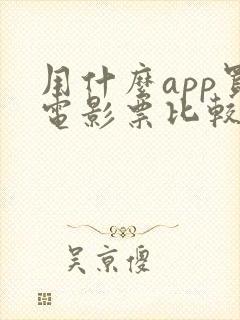 用什麼app買
電影票比較
吴京傻